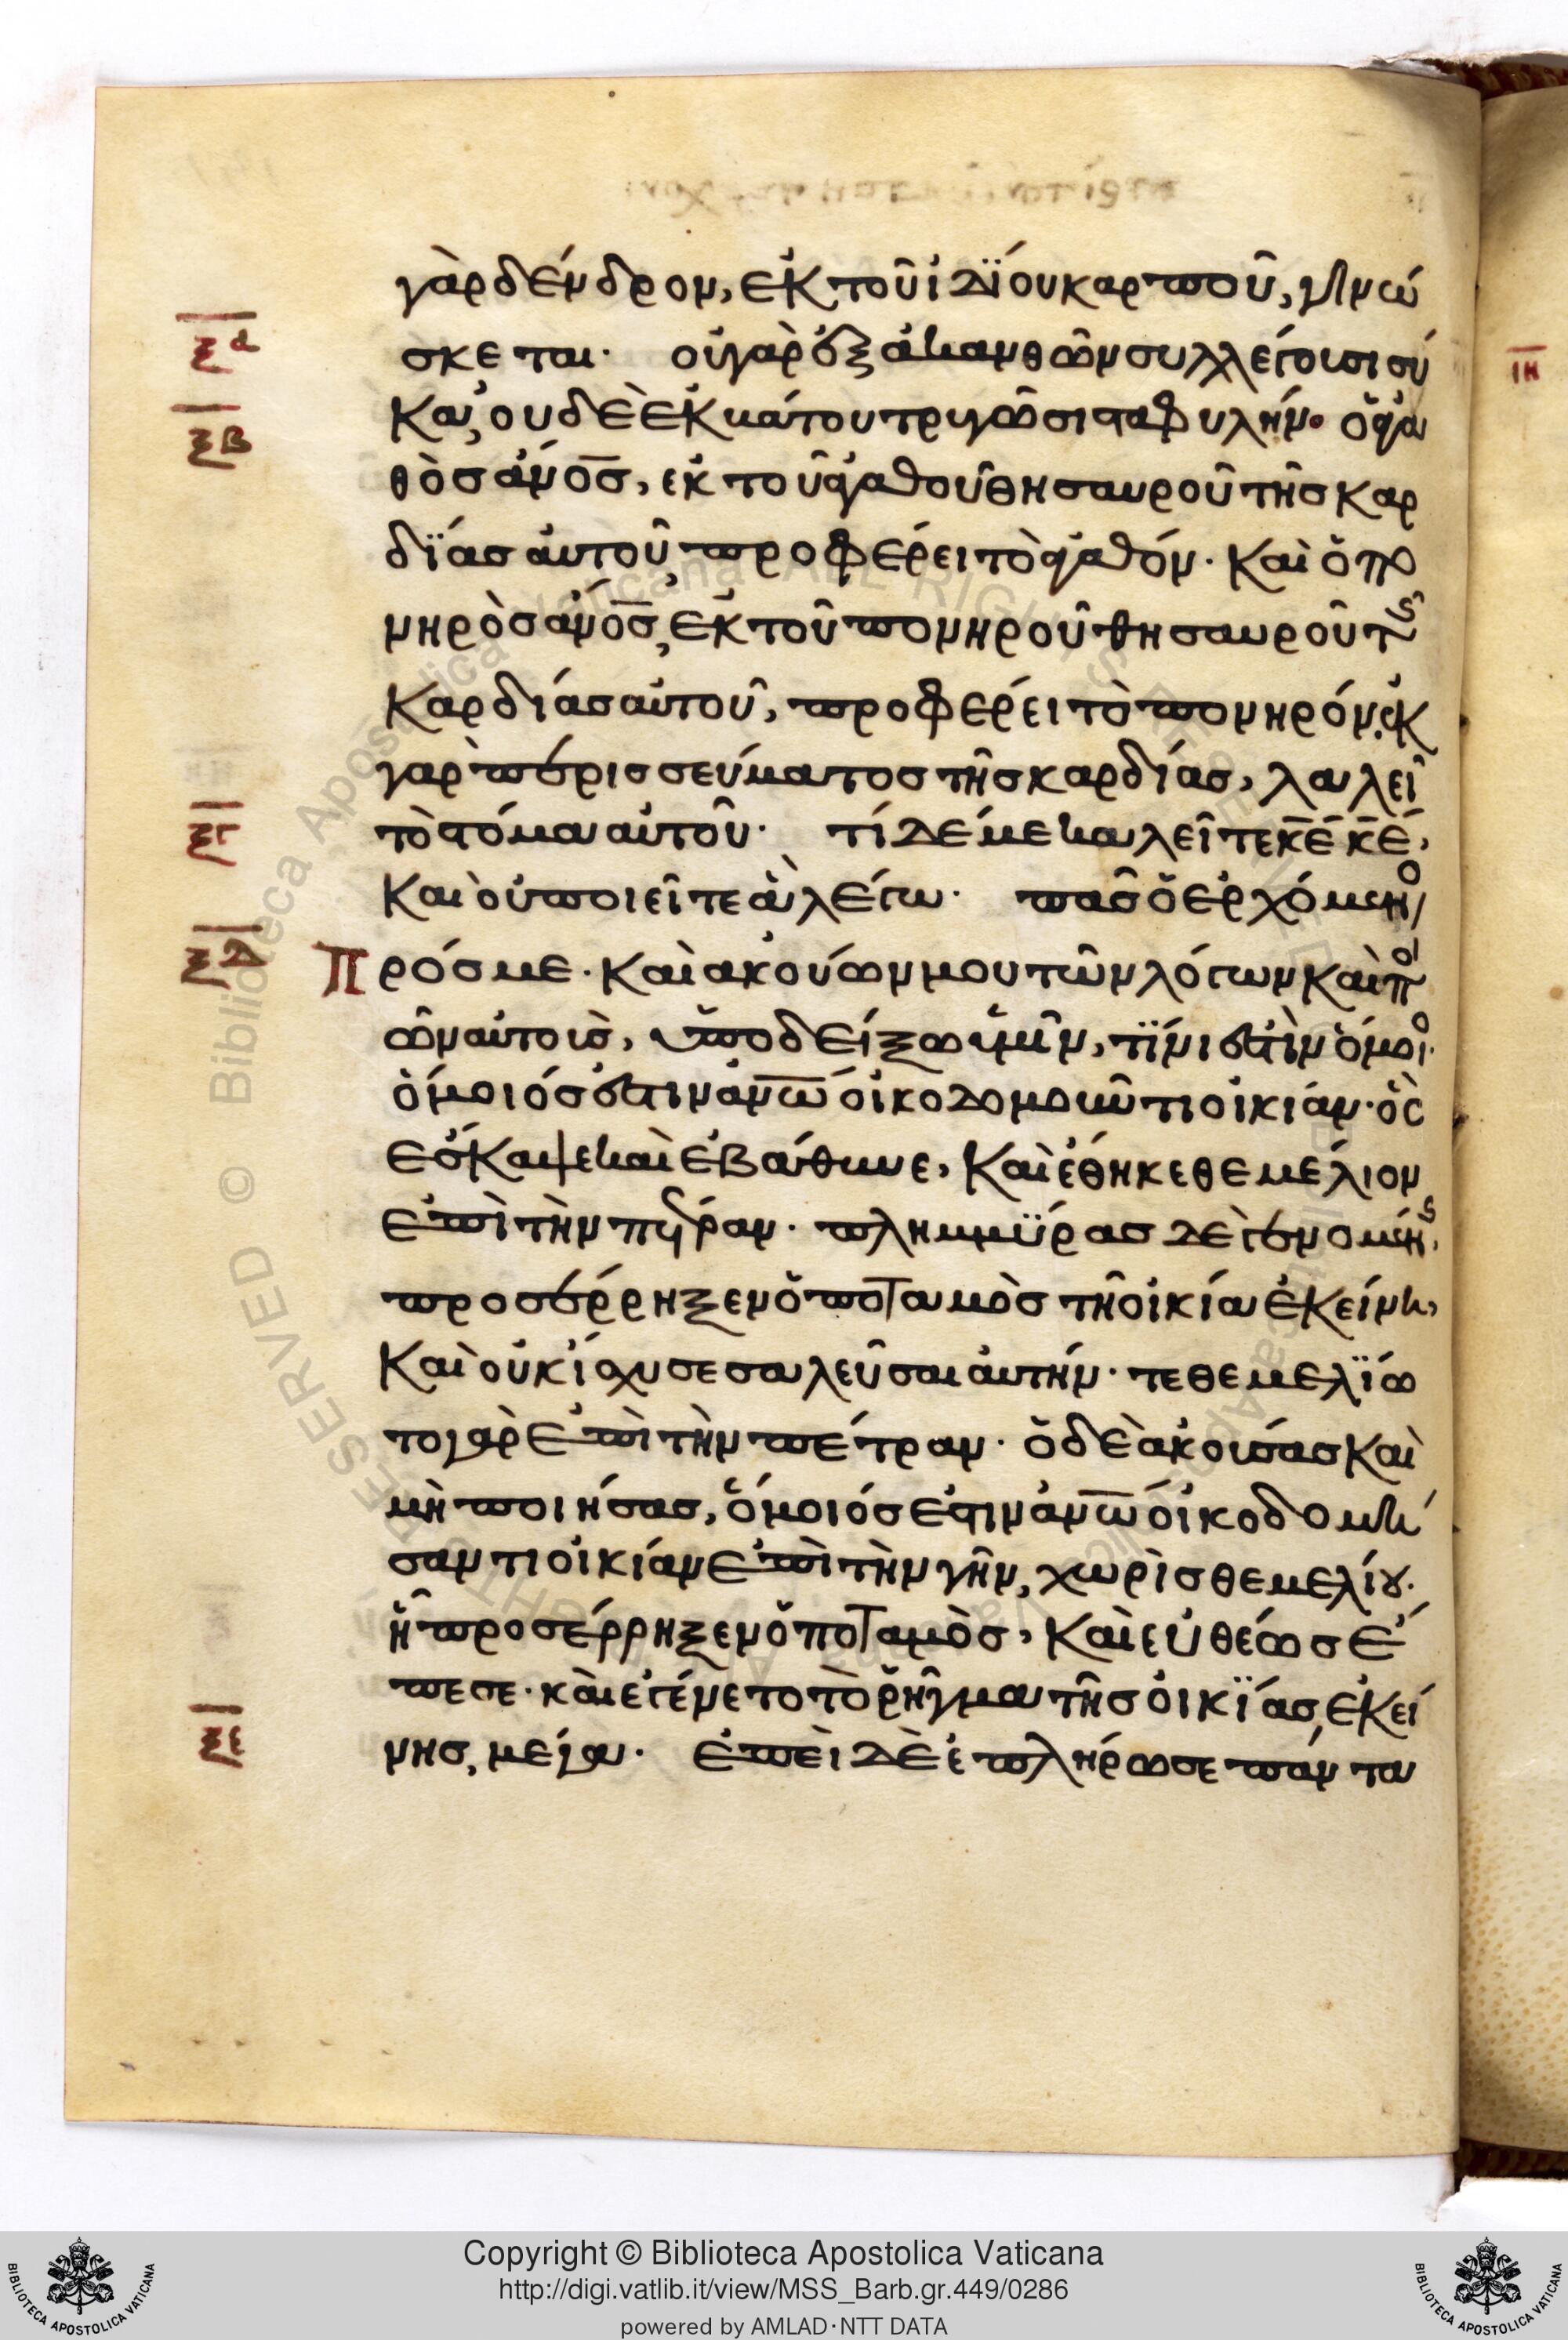 γὰρ δένδρον, ἐκ τοῦ ἰδΐου καρποῦ, γινώ
ξα
σκεται· οὐ γὰρ ἐξ ἀκανθῶν συλλέγουσι σύ
ξβ
κα, ουδὲ ἐκ βάτου τρυγῶσι σταφυλήν· ὁ ἀγα
θὸσ ἄν̅ο̅σ̅, ἐκ τοῦ ἀγαθοῦ θησαυροῦ τῆσ καρ
δΐασ αὐτοῦ προφέρει τὸ ἀγαθόν. καὶ ὁ πο
νηρὸσ αν̅ο̅σ̅, ἐκ τοῦ πονηροῦ θησαυροῦ τῆς
καρδίασ αὐτοῦ, προφέρει τὸ πονηρόν. ἐκ
γαρ περισσεύματοσ τῆσ καρδίασ, λαλεῖ
ξγ
τὸ στόμα αὐτοῦ· τί δέ με καλεῖτε κ̅ε̅ κ̅ε̅,
καὶ οὐ ποιεῖτε ἃ λέγω· πᾶσ ὁ ερχόμενο
ξδ
Πρόσ με. καὶ ακούων μου τῶν λόγων καὶ ποι
ῶν αὐτοισ, ὑποδείξω ὑμῖν, τΐνι ἐστὶν ὅμοιο.
ὅμοιόσ ἐστιν ἀν̅ω̅ οἰκοδομοῦντι οἰκιάν. ὃς
ἔσκαψε καὶ ἐβάθυνε, καὶ ἔθηκε θεμέλιον
ἐπὶ τὴν πέτραν. πλημμΰρασ δὲ γενομένης
προσέρρηξεν ὁ ποταμὸσ τῆ οἰκία ἐκείνη,
καὶ οὐκ ΐσχυσε σαλεῦσαι αὐτήν. τεθεμελΐω
το γὰρ ἐπὶ τὴν πέτραν. ὁ δὲ ἀκούσασ καὶ
μὴ ποιήσασ, ὅμοιόσ ἐστιν ἀν̅ω̅ οἰκοδομή
σαντι οἰκίαν ἐπὶ τὴν γῆν, χωρὶσ θεμελίου.
ἧ προσέρρηξεν ὁ ποταμὸσ, καὶ εὐθέωσ ἔ
πεσε. καὶ ἐγένετο τὸ ῥῆγμα τῆσ οἰκΐασ, ἐκεί
ξε
νησ, μέγα· ἐπεὶ δὲ ἐπλήρωσε πάντα
ιη
Copyright © Biblioteca Apostolica Vaticana
http://digi.vatlib.it/view/MSS_Barb.gr.449/0286
powered by AMLAD·NTT DATA